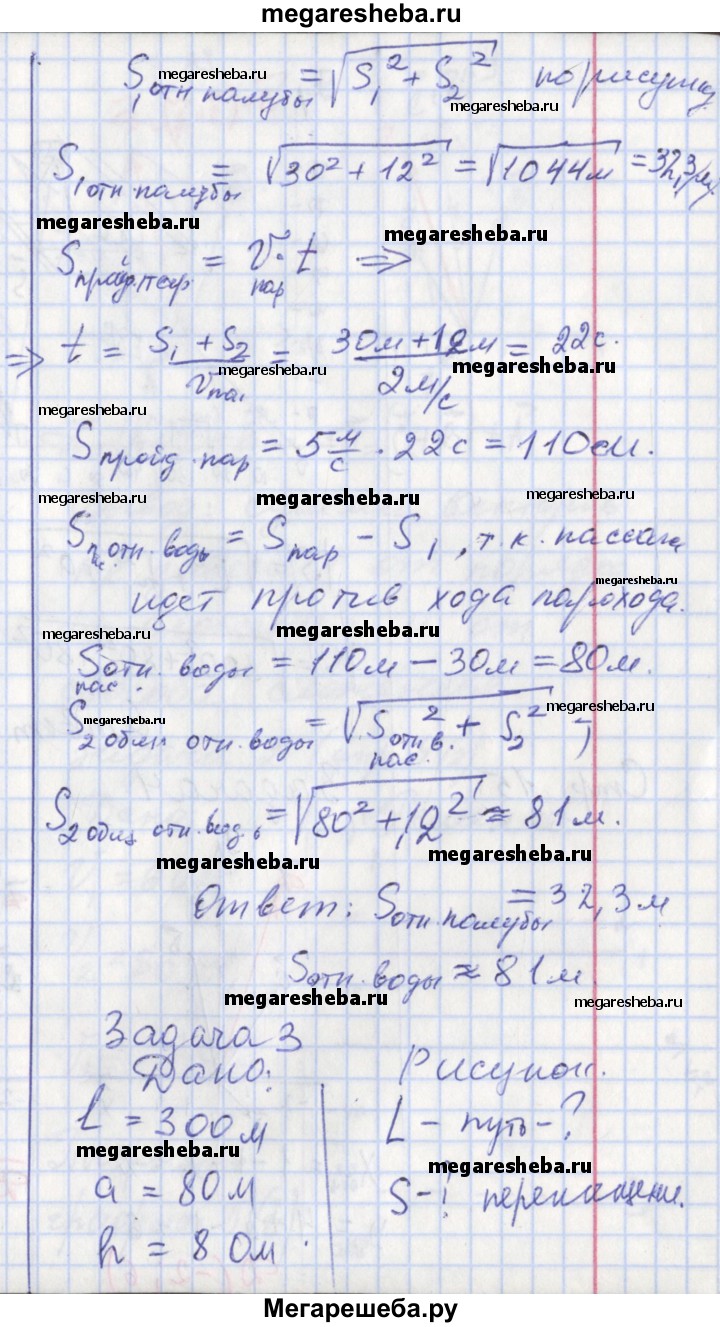 megaresheba.ru
S₁ отн палубы = √(S₁² + S₂²) по рисунку
megaresheba.ru
megaresheba.ru
S₁ отн. палубы = √(30² + 12²) = √1044м = 32,3м.
megaresheba.ru
megaresheba.ru
S пройд. пар = v пар · t ⇒
⇒ t = (S₁ + S₂)/v па. = (30м + 12м)/(2 м/с) = 22с.
megaresheba.ru
megaresheba.ru
megaresheba.ru
S пройд. пар = 5 м/с · 22с = 110 см.
megaresheba.ru
megaresheba.ru
megaresheba.ru
S отн. воды = S пар − S₁, т.к.
megaresheba.ru
идет против хода парохода.
megaresheba.ru
megaresheba.ru
S пас. отн. воды = 110м − 30м = 80м.
megaresheba.ru
megaresheba.ru
S₂ общ. отн. воды = √(S отн.в. пас.² + S₂²)
S₂ общ. отн. вод. = √(80² + 12²) ≈ 81м.
megaresheba.ru
megaresheba.ru
Ответ: S отн. палубы = 32,3м
S отн. воды ≈ 81м
megaresheba.ru
megaresheba.ru
Задача 3
Дано: Рисунок.
l = 300м L – путь – ?
megaresheba.ru
megaresheba.ru
a = 80м S – ! перемещение.
h = 80м.
Мегарешеба.ру